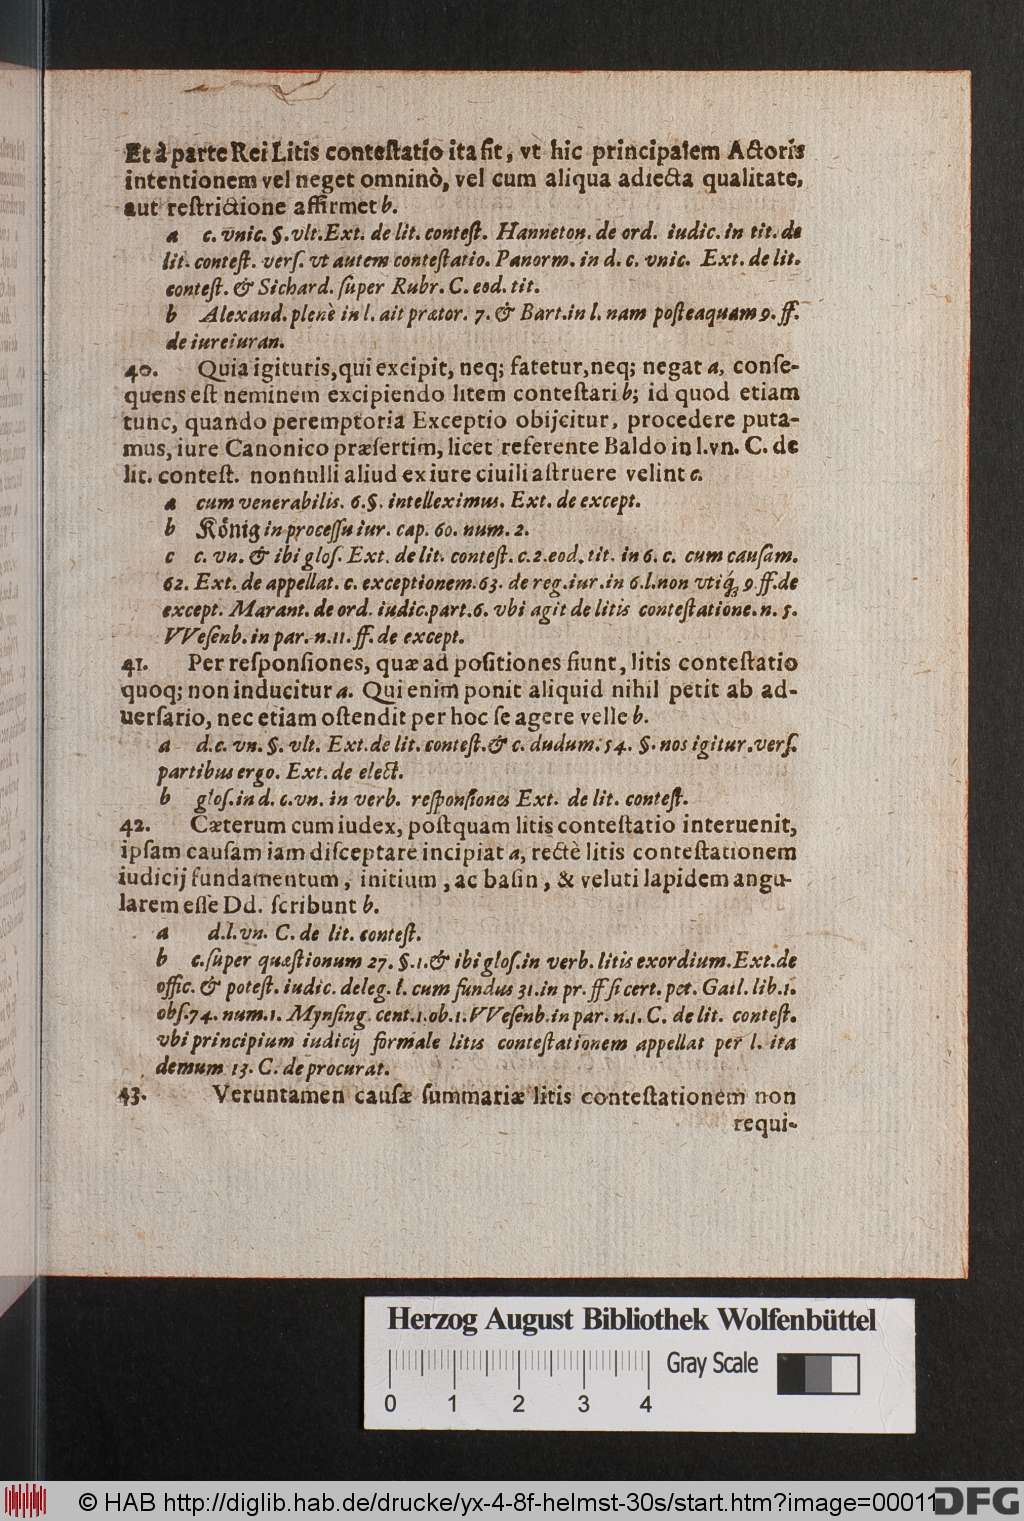 Et à parte Rei Litis conteſtatio ita ſit, vt hic principalem Actoris
intentionem vel neget omninò, vel cum aliqua adiecta qualitate,
aut reſtrictione affirmet b.
a c. vnic. §. vlt. Ext. de lit. conteſt. Hanneton. de ord. iudic. in tit. de
lit. conteſt. verſ. vt autem conteſtatio. Panorm. in d. c. vnic. Ext. de lit.
conteſt. & Sichard. ſuper Rubr. C. eod. tit.
b Alexand. plenè in l. ait prætor. 7. & Bart. in l. nam poſteaquam 9. ff.
de iureiuran.
40. Quia igitur is, qui excipit, neq; fatetur, neq; negat a, conſe-
quens eſt neminem excipiendo litem conteſtari b; id quod etiam
tunc, quando peremptoria Exceptio obijcitur, procedere puta-
mus, iure Canonico præſertim, licet referente Baldo in l. vn. C. de
lit. conteſt. nonnulli aliud ex iure ciuili aſtruere velint c.
a cum venerabilis. 6. §. intelleximus. Ext. de except.
b König in proceſſu iur. cap. 60. num. 2.
c c. vn. & ibi gloſ. Ext. de lit. conteſt. c. 2. eod. tit. in 6. c. cum cauſam.
62. Ext. de appellat. c. exceptionem. 63. de reg. iur. in 6. l. non vtiq́; 9. ff. de
except. Marant. de ord. iudic. part. 6. vbi agit de litis conteſtatione. n. 5.
VVeſenb. in par. n. 11. ff. de except.
41. Per reſponſiones, quæ ad poſitiones fiunt, litis conteſtatio
quoq; non inducitur a. Qui enim ponit aliquid nihil petit ab ad-
uerſario, nec etiam oſtendit per hoc ſe agere velle b.
a d. c. vn. §. vlt. Ext. de lit. conteſt. & c. dudum. 54. §. nos igitur. verſ.
partibus ergo. Ext. de elect.
b gloſ. in d. c. vn. in verb. reſponſiones Ext. de lit. conteſt.
42. Cæterum cum iudex, poſtquam litis conteſtatio interuenit,
ipſam cauſam iam diſceptare incipiat a, rectè litis conteſtationem
iudicij fundamentum, initium, ac baſin, & veluti lapidem angu-
larem eſſe Dd. ſcribunt b.
a d. l. vn. C. de lit. conteſt.
b c. ſuper quæſtionum 27. §. 1. & ibi gloſ. in verb. litis exordium. Ext. de
offic. & poteſt. iudic. deleg. l. cum fundus 31. in pr. ff ſi cert. pet. Gail. lib. 1.
obſ. 74. num. 1. Mynſing. cent. 1. ob. 1. VVeſenb. in par. n. 1. C. de lit. conteſt.
vbi principium iudicij formale litis conteſtationem appellat per l. ita
demum 13. C. de procurat.
43. Veruntamen cauſæ ſummariæ litis conteſtationem non
requi-
Herzog August Bibliothek Wolfenbüttel
Gray Scale
0 1 2 3 4
© HAB http://diglib.hab.de/drucke/yx-4-8f-helmst-30s/start.htm?image=00011
DFG